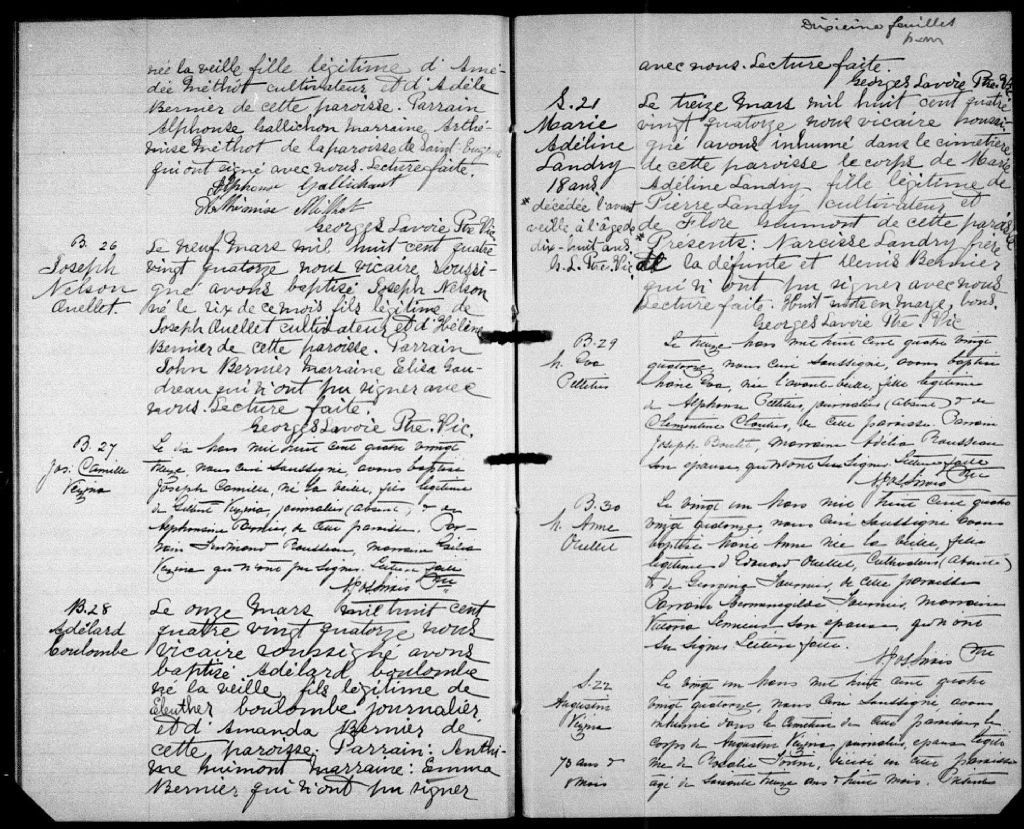 née la veille fille légitime d'Amé-
dée Méthot cultivateur et d'Adèle
Bernier de cette paroisse. Parrain
Alphonse Gallichon Marraine Arthé-
mise Méthot de la paroisse de Saint-Eugène
qui ont signé avec nous. Lecture faite.
Alphonse Gallichant
Arthémise Méthot
Georges Lavoie Ptre Vic
B. 26
Joseph
Nelson
Ouellet.
Le neuf Mars mil huit cent quatre
vingt quatorze nous vicaire soussi-
gné avons baptisé Joseph Nelson
né le six de ce mois fils légitime de
Joseph Ouellet cultivateur et d'Hélène
Bernier de cette paroisse. Parrain
John Bernier Marraine Eliza Gau-
dreau qui n'ont pu signer avec
nous. Lecture faite.
Georges Lavoie Ptre. Vic.
B. 27
Jos. Camille
Vezina
Le dix Mars mil huit cent quatre vingt
nous Curé soussigné, avons baptisé
Joseph Camille, né la veille, fils légitime
de Vezina, journalier (absent) & de
Alphonsine de cette paroisse. Par-
rain Ferdinand Rousseau, marraine
Vezina qui n'ont pu signer. Lecture faite
Ptre
B. 28
Adélard
Coulombe
Le onze Mars mil huit cent
quatre vingt quatorze nous
vicaire soussigné avons
baptisé Adélard Coulombe
né la veille, fils légitime de
Eleuther Coulombe journalier,
et d'Amanda Bernier de
cette paroisse. Parrain: Anthi-
me Guimont Marraine: Emma
Bernier qui n'ont pu signer
Dixième feuillet
avec nous. Lecture faite.
Georges Lavoie Ptre. Vic.
S. 21
Marie
Adéline
Landry
18 ans
* décédée l'avant
veille à l'âge de
dix-huit ans
G. L. Ptre. Vic
Le treize Mars mil huit cent quatre
vingt quatorze nous vicaire soussi-
gné avons inhumé dans le cimetière
de cette paroisse le corps de Marie
Adéline Landry fille légitime de
Pierre Landry cultivateur et
de Flore Guimont de cette paroisse
* Présents: Narcisse Landry frère
de la défunte et Denis Bernier
qui n'ont pu signer avec nous
Lecture faite. Huit mots en marge, bons.
Georges Lavoie Ptre. Vic
B. 29
M. Eva
Pelletier
Le Mars mil huit cent quatre vingt
quatorze, nous curé soussigné, avons baptisé
Marie Eva, née l'avant-veille, fille légitime
de Alphonse Pelletier, journalier (absent) & de
Clementine Cloutier, de cette paroisse. Parrain
Joseph Boulet, Marraine Adélia Rousseau
son épouse, qui n'ont su signer. Lecture faite
Ptre
B. 30
M. Anne
Ouellet
Le vingt un Mars mil huit cent quatre
vingt quatorze, nous Curé soussigné avons
baptisé Marie Anne née la veille, fille
légitime d'Edouard Ouellet, Cultivateur (absent)
& de Georgina Fournier, de cette paroisse
Parrain Hermenegilde Fournier, Marraine
son épouse, qui n'ont
su signer Lecture faite.
Ptre
S. 22
Augustin
Vezina
73 ans &
8 mois
Le vingt un Mars mil huit cent quatre
vingt quatorze, nous Curé soussigné, avons
inhumé dans le Cimetière de cette paroisse, le
corps de Augustin Vezina, journalier, époux légiti-
me de Rosalie décédé en cette paroisse
âgé de soixante treize ans & huit mois. Présents